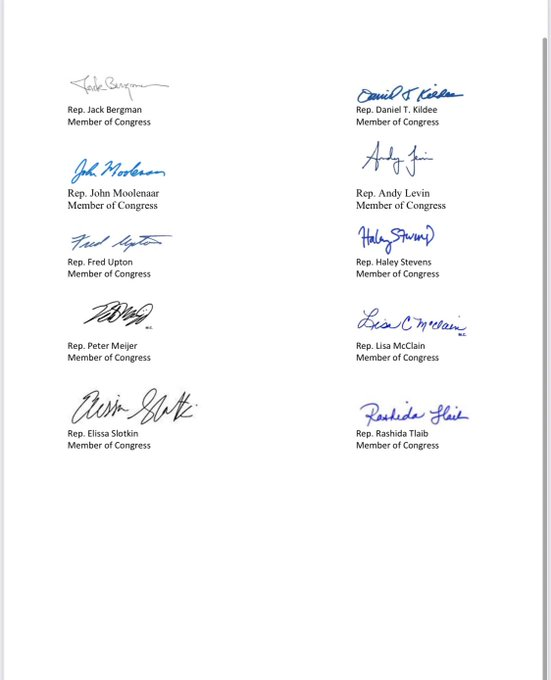 Jack Bergman
Rep. Jack Bergman
Member of Congress
Daniel T Kildee
Rep. Daniel T. Kildee
Member of Congress
John Moolenaar
Rep. John Moolenaar
Member of Congress
Andy Levin
Rep. Andy Levin
Member of Congress
Fred Upton
Rep. Fred Upton
Member of Congress
Haley Stevens
Rep. Haley Stevens
Member of Congress
M.C.
Rep. Peter Meijer
Member of Congress
Lisa C McClain
M.C.
Rep. Lisa McClain
Member of Congress
Elissa Slotkin
Rep. Elissa Slotkin
Member of Congress
Rashida Tlaib
Rep. Rashida Tlaib
Member of Congress